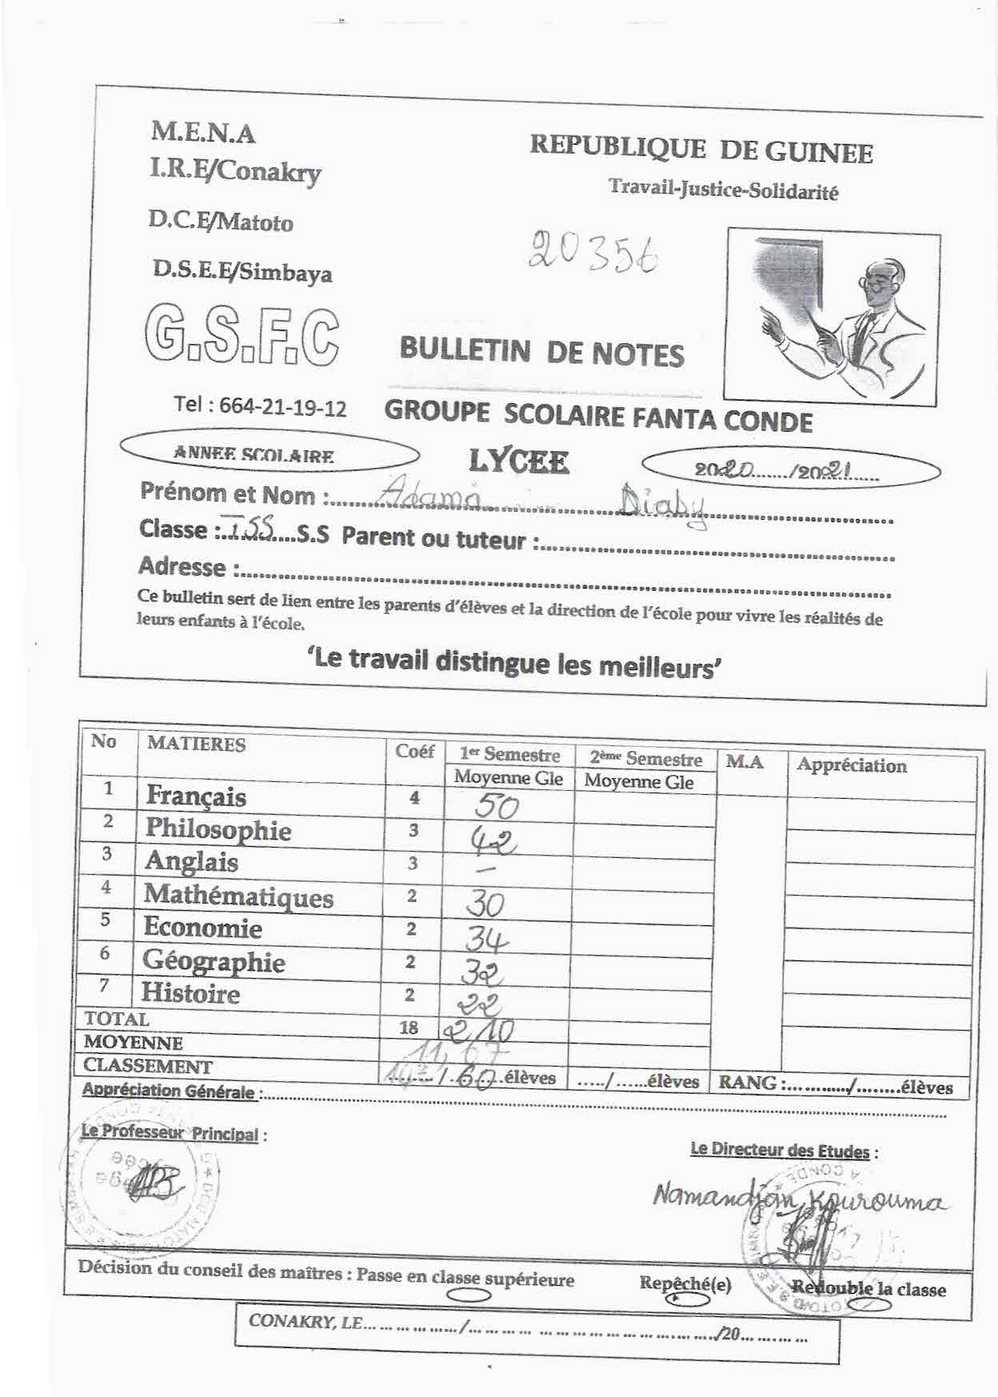 M.E.N.A
REPUBLIQUE DE GUINEE
I.R.E/Conakry
Travail-Justice-Solidarité
D.C.E/Matoto
20356
D.S.E.E/Simbaya
G.S.F.C
BULLETIN DE NOTES
Tel : 664-21-19-12
GROUPE SCOLAIRE FANTA CONDE
ANNEE SCOLAIRE
LYCEE
2020......./2021......
Prénom et Nom :......Adama......Diaby......
Classe :..TSS....S.S Parent ou tuteur :......
Adresse :......
Ce bulletin sert de lien entre les parents d'élèves et la direction de l'école pour vivre les réalités de
leurs enfants à l'école.
'Le travail distingue les meilleurs'
No MATIERES Coéf 1er Semestre 2ème Semestre M.A Appréciation
Moyenne Gle Moyenne Gle
1 Français 4 50
2 Philosophie 3 42
3 Anglais 3 –
4 Mathématiques 2 30
5 Economie 2 34
6 Géographie 2 32
7 Histoire 2 22
TOTAL 18 210
MOYENNE 11,67
CLASSEMENT /.60....élèves ...../......élèves RANG :.........../........élèves
Appréciation Générale :......
Le Professeur Principal :
Le Directeur des Etudes :
Namandjan Kourouma
Décision du conseil des maîtres : Passe en classe supérieure Repêché(e) Redouble la classe
CONAKRY, LE................/......................................./20...........